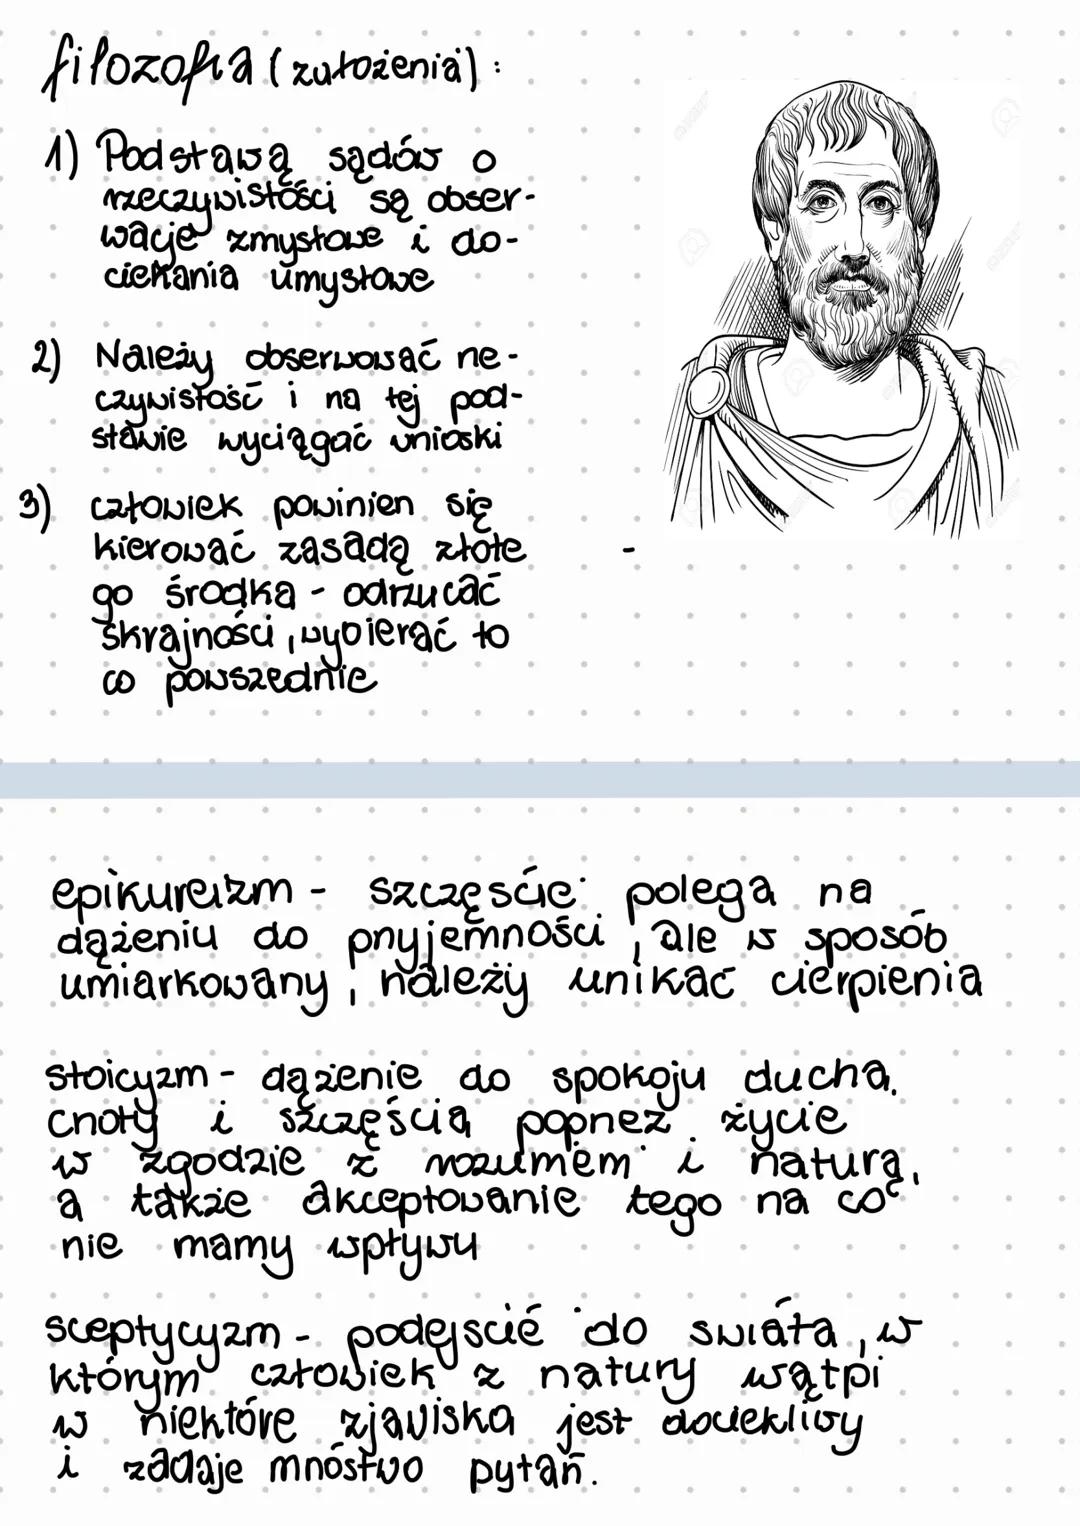 filozofia (założenia):
1) Podstawą sądów o
rzeczywistości są obser-
wacje zmysłowe i do-
ciekania umysłowe
2) Należy obserwować rze-
czywistość i na tej pod-
stawie wyciągać wnioski
3) człowiek powinien się
kierować zasadą złote
go środka - odrzucać
skrajności, wybierać to
co powszednie
-
epikureizm - szczęście polega na
dążeniu do przyjemności, ale w sposób
umiarkowany, należy unikać cierpienia
stoicyzm - dążenie do spokoju ducha,
cnoty i szczęścia poprzez życie
w zgodzie z rozumem i naturą,
a także akceptowanie tego na co
nie mamy wpływu
sceptycyzm - podejście do świata, w
którym człowiek z natury wątpi
w niektóre zjawiska jest dociekliwy
i zadaje mnóstwo pytań.